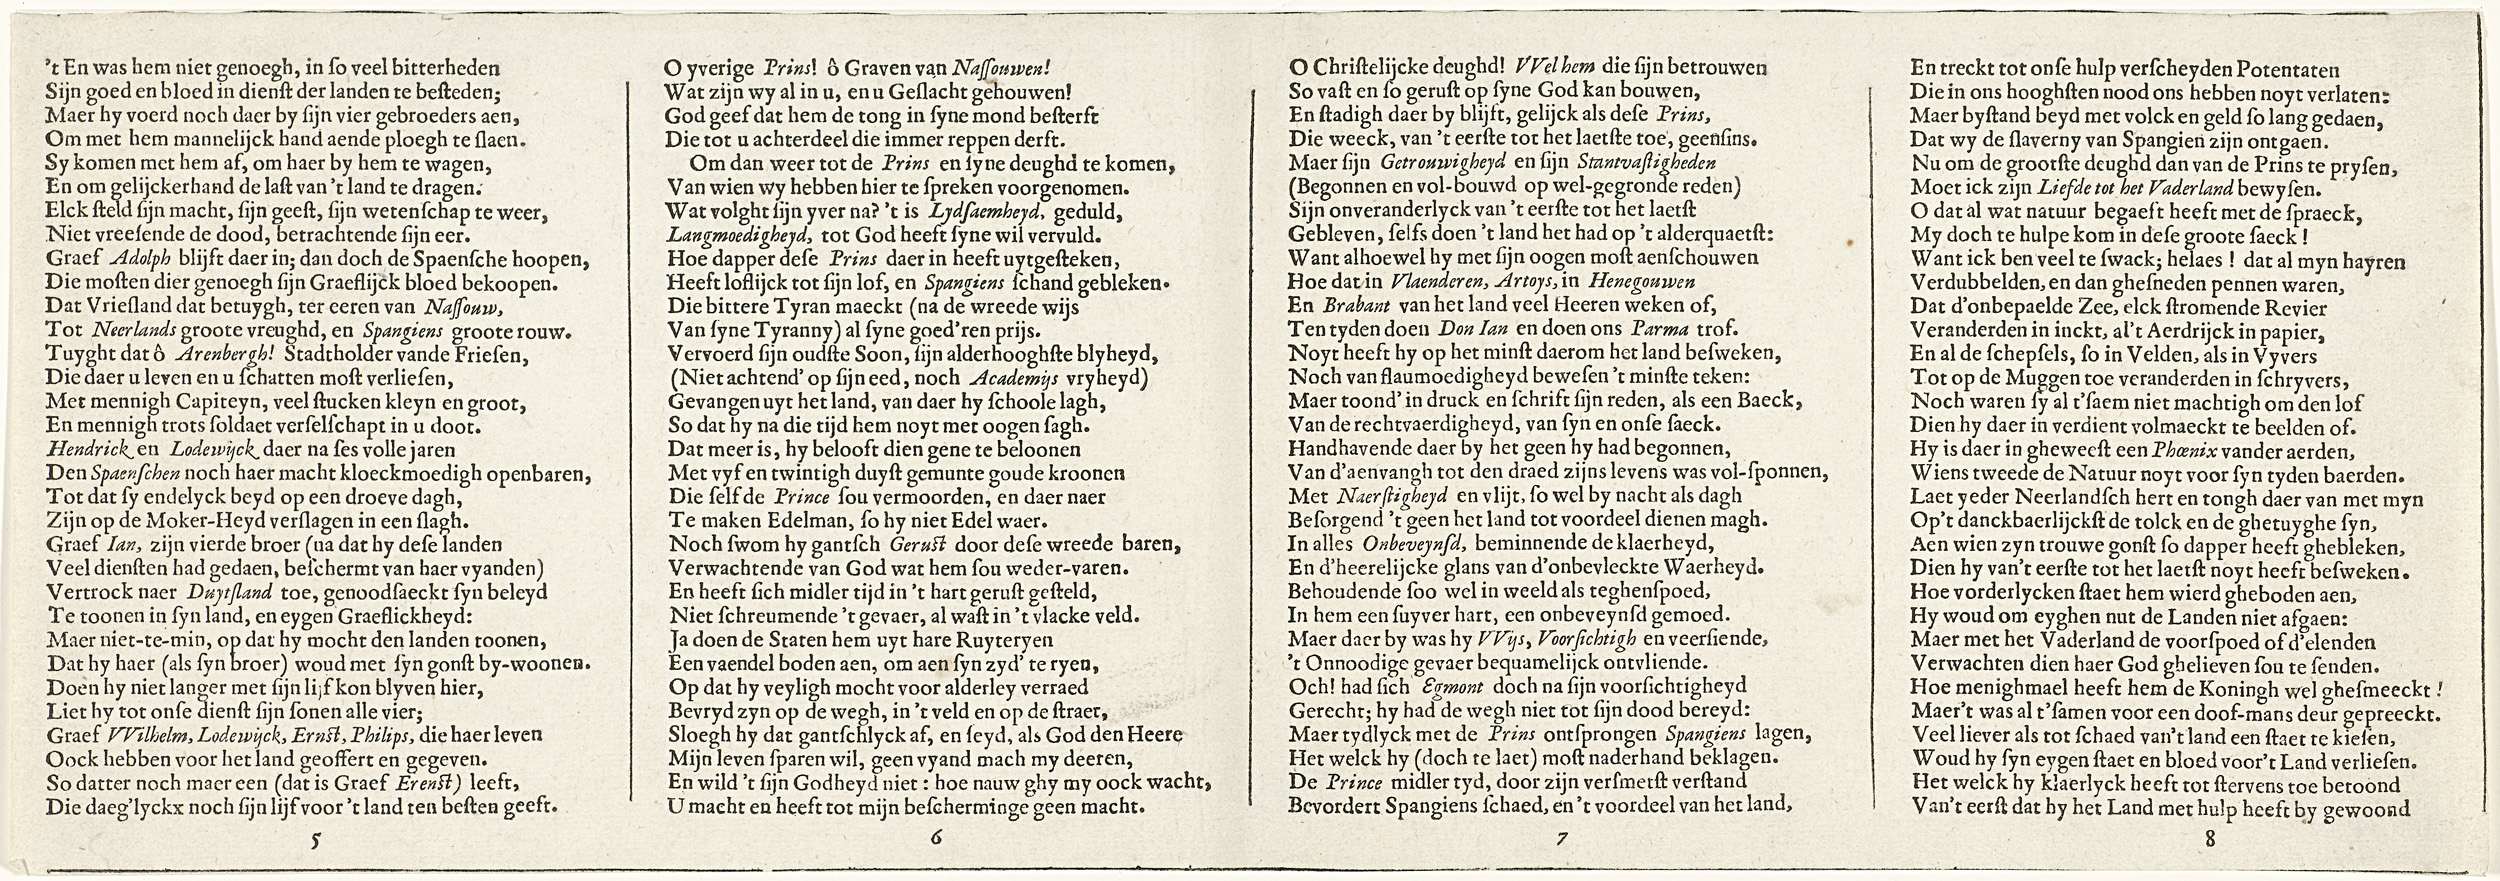 ’t En was hem niet genoegh, in ſo veel bitterheden
Sijn goed en bloed in dienſt der landen te beſteden;
Maer hy voerd noch daer by ſijn vier gebroeders aen,
Om met hem mannelijck hand aende ploegh te ſlaen.
Sy komen met hem af, om haer by hem te wagen,
En om gelijckerhand de laſt van ’t land te dragen.
Elck ſteld ſijn macht, ſijn geeſt, ſijn wetenſchap te weer,
Niet vreeſende de dood, betrachtende ſijn eer.
Graef Adolph blijft daer in; dan doch de Spaenſche hoopen,
Die moſten dier genoegh ſijn Graeflijck bloed bekoopen.
Dat Vrieſland dat betuygh, ter eeren van Naſſouw,
Tot Neerlands groote vreughd, en Spangiens groote rouw.
Tuyght dat ô Arenbergh! Stadtholder vande Frieſen,
Die daer u leven en u ſchatten moſt verlieſen,
Met mennigh Capiteyn, veel ſtucken kleyn en groot,
En mennigh trots ſoldaet verſelſchapt in u doot.
Hendrick en Lodewijck daer na ſes volle jaren
Den Spaenſchen noch haer macht kloeckmoedigh openbaren,
Tot dat ſy endelyck beyd op een droeve dagh,
Zijn op de Moker-Heyd verſlagen in een ſlagh.
Graef Ian, zijn vierde broer (na dat hy deſe landen
Veel dienſten had gedaen, beſchermt van haer vyanden)
Vertrock naer Duytſland toe, genoodſaeckt ſyn beleyd
Te toonen in ſyn land, en eygen Graeflickheyd:
Maer niet-te-min, op dat hy mocht den landen toonen,
Dat hy haer (als ſyn broer) woud met ſyn gonſt by-woonen.
Doen hy niet langer met ſijn lijf kon blyven hier,
Liet hy tot onſe dienſt ſijn ſonen alle vier;
Graef VVilhelm, Lodewijck, Ernſt, Philips, die haer leven
Oock hebben voor het land geoffert en gegeven.
So datter noch maer een (dat is Graef Erenſt) leeft,
Die daeg’lyckx noch ſijn lijf voor ’t land ten beſten geeft.
5
O yverige Prins! ô Graven van Naſſouwen!
Wat zijn wy al in u, en u Geſlacht gehouwen!
God geef dat hem de tong in ſyne mond beſterft
Die tot u achterdeel die immer reppen derft.
Om dan weer tot de Prins en ſyne deughd te komen,
Van wien wy hebben hier te ſpreken voorgenomen.
Wat volght ſijn yver na? ’t is Lydſaemheyd, geduld,
Langmoedigheyd, tot God heeft ſyne wil vervuld.
Hoe dapper deſe Prins daer in heeft uytgeſteken,
Heeft loflijck tot ſijn lof, en Spangiens ſchand gebleken.
Die bittere Tyran maeckt (na de wreede wijs
Van ſyne Tyranny) al ſyne goed’ren prijs.
Vervoerd ſijn oudſte Soon, ſijn alderhooghſte blyheyd,
(Niet achtend’ op ſijn eed, noch Academijs vryheyd)
Gevangen uyt het land, van daer hy ſchoole lagh,
So dat hy na die tijd hem noyt met oogen ſagh.
Dat meer is, hy belooft dien gene te beloonen
Met vyf en twintigh duyſt gemunte goude kroonen
Die ſelfde Prince ſou vermoorden, en daer naer
Te maken Edelman, ſo hy niet Edel waer.
Noch ſwom hy gantſch Geruſt door deſe wreede baren,
Verwachtende van God wat hem ſou weder-varen.
En heeft ſich midler tijd in ’t hart geruſt geſteld,
Niet ſchreumende ’t gevaer, al waſt in ’t vlacke veld.
Ja doen de Staten hem uyt hare Ruyteryen
Een vaendel boden aen, om aen ſyn zyd’ te ryen,
Op dat hy veyligh mocht voor alderley verraed
Bevryd zyn op de wegh, in ’t veld en op de ſtraet,
Sloegh hy dat gantſchlyck af, en ſeyd, als God den Heere
Mijn leven ſparen wil, geen vyand mach my deeren,
En wild ’t ſijn Godheyd niet: hoe nauw ghy my oock wacht,
U macht en heeft tot mijn beſcherminge geen macht.
6
O Chriſtelijcke deughd! VVel hem die ſijn betrouwen
So vaſt en ſo geruſt op ſyne God kan bouwen,
En ſtadigh daer by blijft, gelijck als deſe Prins,
Die weeck, van ’t eerſte tot het laetſte toe, geenſins.
Maer ſijn Getrouwigheyd en ſijn Stantvaſtigheden
(Begonnen en vol-bouwd op wel-gegronde reden)
Sijn onveranderlyck van ’t eerſte tot het laetſt
Gebleven, ſelfs doen ’t land het had op ’t alderquaetſt:
Want alhoewel hy met ſijn oogen moſt aenſchouwen
Hoe dat in Vlaenderen, Artoys, in Henegouwen
En Brabant van het land veel Heeren weken of,
Ten tyden doen Don Ian en doen ons Parma trof.
Noyt heeft hy op het minſt daerom het land beſweken,
Noch van flaumoedigheyd beweſen ’t minſte teken:
Maer toond’ in druck en ſchrift ſijn reden, als een Baeck,
Van de rechtvaerdigheyd, van ſyn en onſe ſaeck.
Handhavende daer by het geen hy had begonnen,
Van d’aenvangh tot den draed zijns levens was vol-ſponnen,
Met Naerſtigheyd en vlijt, ſo wel by nacht als dagh
Beſorgend ’t geen het land tot voordeel dienen magh.
In alles Onbeveynſd, beminnende de klaerheyd,
En d’heerelijcke glans van d’onbevleckte Waerheyd.
Behoudende ſoo wel in weeld als teghenſpoed,
In hem een ſuyver hart, een onbeveynſd gemoed.
Maer daer by was hy VVijs, Voorſichtigh en veerſiende,
’t Onnoodige gevaer bequamelijck ontvliende.
Och! had ſich Egmont doch na ſijn voorſichtigheyd
Gerecht; hy had de wegh niet tot ſijn dood bereyd:
Maer tydlyck met de Prins ontſprongen Spangiens lagen,
Het welck hy (doch te laet) moſt naderhand beklagen.
De Prince midler tyd, door zijn verſmetſt verſtand
Bevordert Spangiens ſchaed, en ’t voordeel van het land,
7
En treckt tot onſe hulp verſcheyden Potentaten
Die in ons hooghſten nood ons hebben noyt verlaten:
Maer byſtand beyd met volck en geld ſo lang gedaen,
Dat wy de ſlaverny van Spangien zijn ontgaen.
Nu om de grootſte deughd dan van de Prins te pryſen,
Moet ick zijn Liefde tot het Vaderland bewyſen.
O dat al wat natuur begaeft heeft met de ſpraeck,
My doch te hulpe kom in deſe groote ſaeck!
Want ick ben veel te ſwack; helaes! dat al myn hayren
Verdubbelden, en dan gheſneden pennen waren,
Dat d’onbepaelde Zee, elck ſtromende Revier
Veranderden in inckt, al’t Aerdrijck in papier,
En al de ſchepſels, ſo in Velden, als in Vyvers
Tot op de Muggen toe veranderden in ſchryvers,
Noch waren ſy al t’ſaem niet machtigh om den lof
Dien hy daer in verdient volmaeckt te beelden of.
Hy is daer in gheweeſt een Phœnix vander aerden,
Wiens tweede de Natuur noyt voor ſyn tyden baerden.
Laet yeder Neerlandſch hert en tongh daer van met myn
Op’t danckbaerlijckſt de tolck en de ghetuyghe ſyn,
Aen wien zyn trouwe gonſt ſo dapper heeft ghebleken,
Dien hy van’t eerſte tot het laetſt noyt heeft beſweken.
Hoe vorderlycken ſtaet hem wierd gheboden aen,
Hy woud om eyghen nut de Landen niet afgaen:
Maer met het Vaderland de voorſpoed of d’elenden
Verwachten dien haer God ghelieven ſou te ſenden.
Hoe menighmael heeft hem de Koningh wel gheſmeeckt!
Maer’t was al t’ſamen voor een doof-mans deur gepreeckt.
Veel liever als tot ſchaed van’t land een ſtaet te kieſen,
Woud hy ſyn eygen ſtaet en bloed voor’t Land verlieſen.
Het welck hy klaerlyck heeft tot ſtervens toe betoond
Van’t eerſt dat hy het Land met hulp heeft by gewoond
8